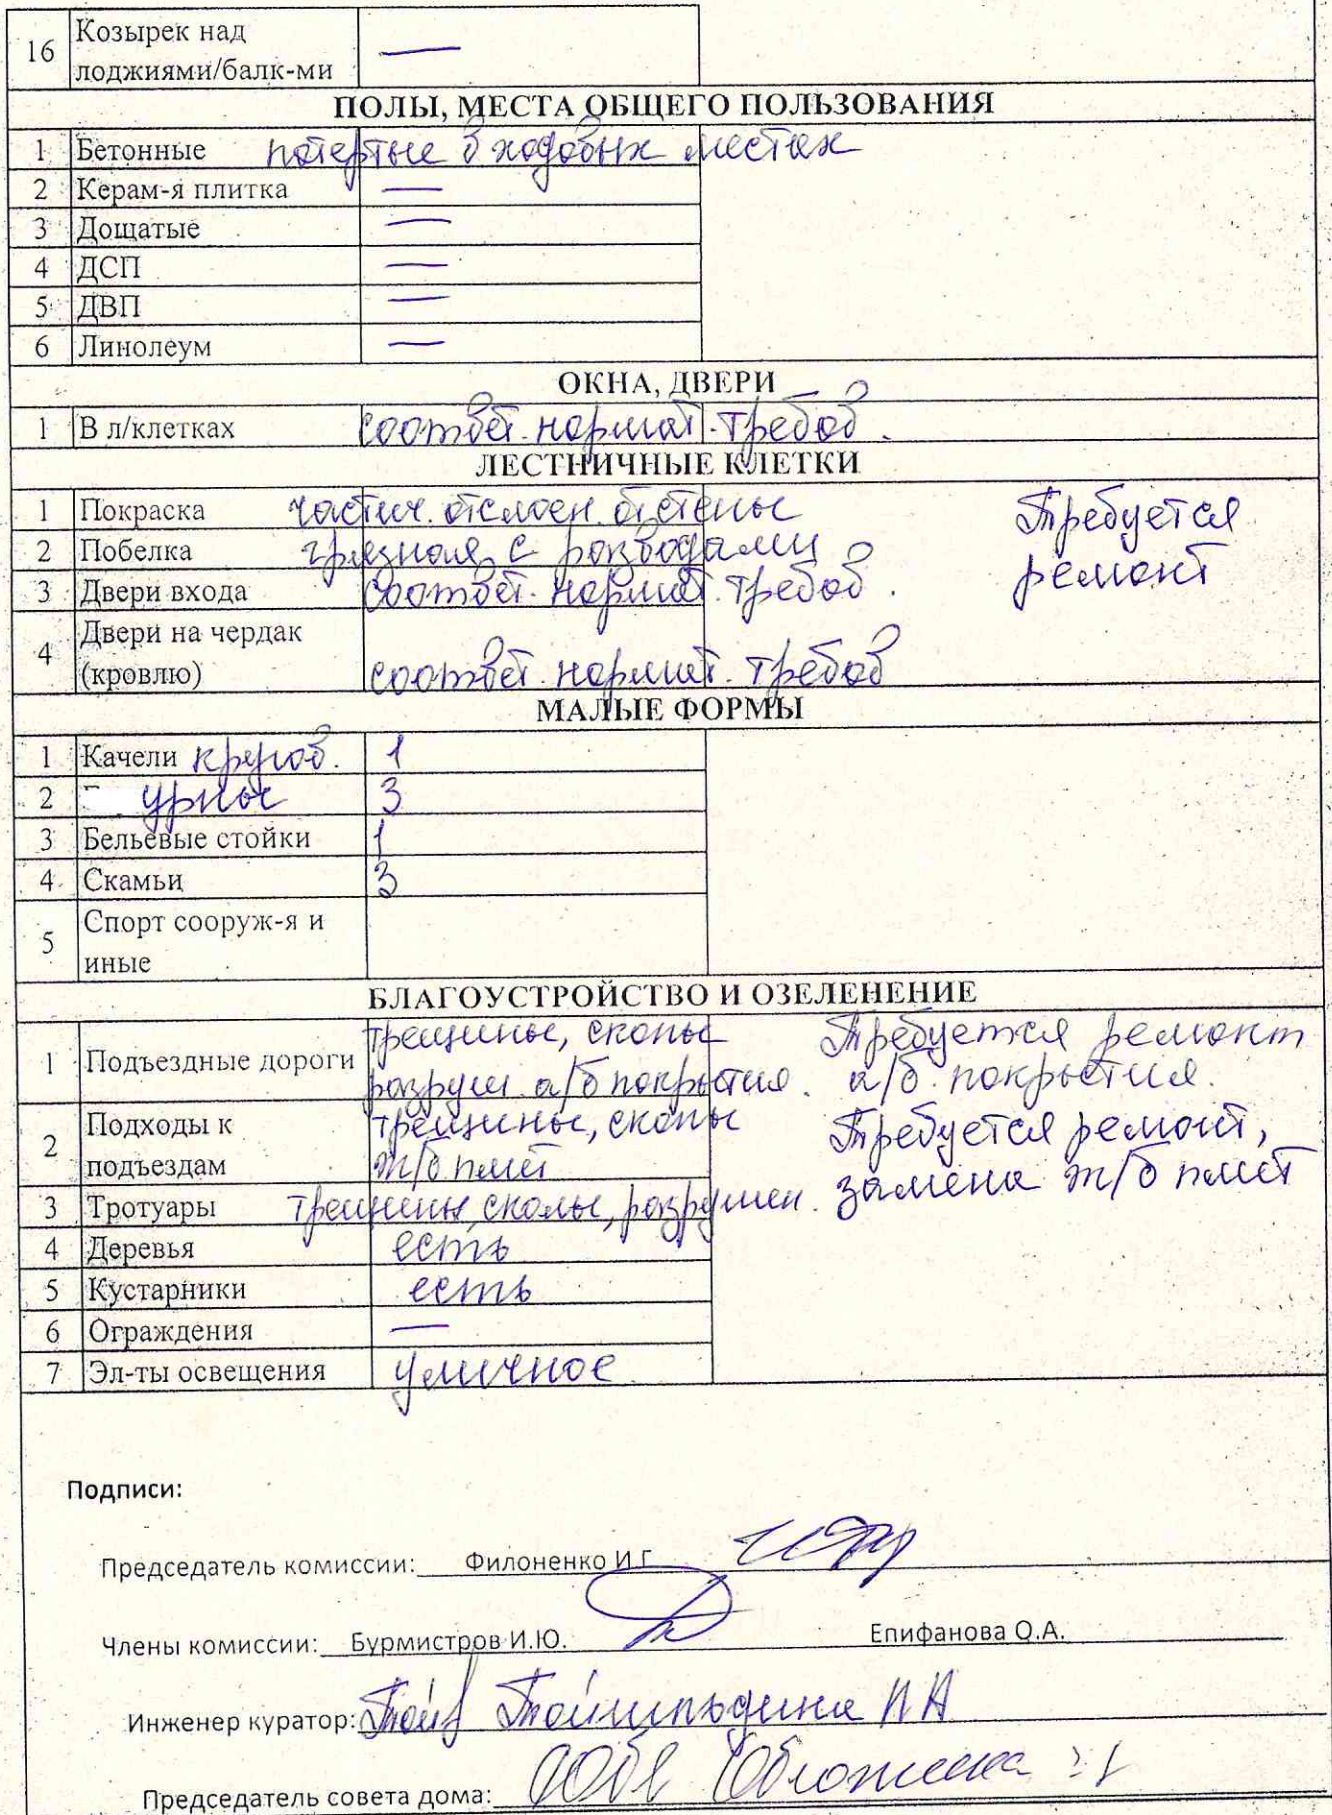 16 Козырек над
лоджиями/балк-ми —
ПОЛЫ, МЕСТА ОБЩЕГО ПОЛЬЗОВАНИЯ
1 Бетонные потертые в ходовых местах
2 Керам-я плитка —
3 Дощатые —
4 ДСП —
5 ДВП —
6 Линолеум —
ОКНА, ДВЕРИ
1 В л/клетках соответ. нормат. требов.
ЛЕСТНИЧНЫЕ КЛЕТКИ
1 Покраска частич. отслоен. от стены Требуется
2 Побелка грязная, с разводами ремонт
3 Двери входа соответ. нормат. требов.
4 Двери на чердак
(кровлю) соответ. нормат. требов
МАЛЫЕ ФОРМЫ
1 Качели кругов. 1
2 урны 3
3 Бельевые стойки 1
4 Скамьи 3
5 Спорт сооруж-я и
иные
БЛАГОУСТРОЙСТВО И ОЗЕЛЕНЕНИЕ
1 Подъездные дороги трещины, сколы Требуется ремонт
разруш. а/б покрытия. а/б. покрытия.
2 Подходы к трещины, сколы Требуется ремонт,
подъездам ж/б плит замена ж/б плит
3 Тротуары трещины, сколы, разрушен.
4 Деревья есть
5 Кустарники есть
6 Ограждения —
7 Эл-ты освещения уличное
Подписи:
Председатель комиссии: Филоненко И.Г.
Члены комиссии: Бурмистров И.Ю. Епифанова О.А.
Инженер куратор:
Председатель совета дома: